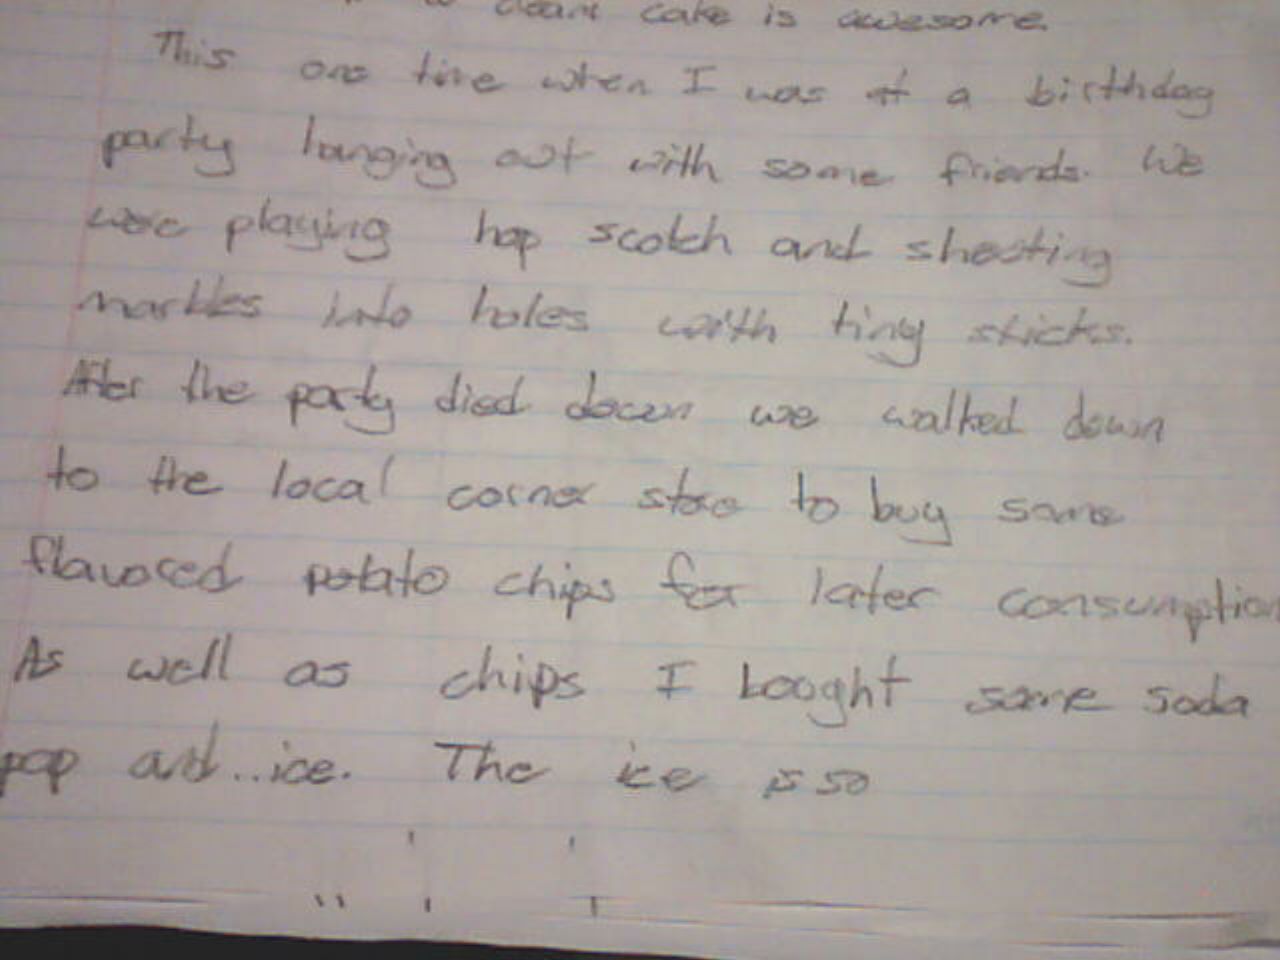 cake is awesome.
This one time when I was at a birthday
party hanging out with some friends. We
were playing hop scotch and shooting
marbles into holes with tiny sticks.
After the party died down we walked down
to the local corner store to buy some
flavored potato chips for later consumption
As well as chips I bought some soda
pop and...ice. The ice is so